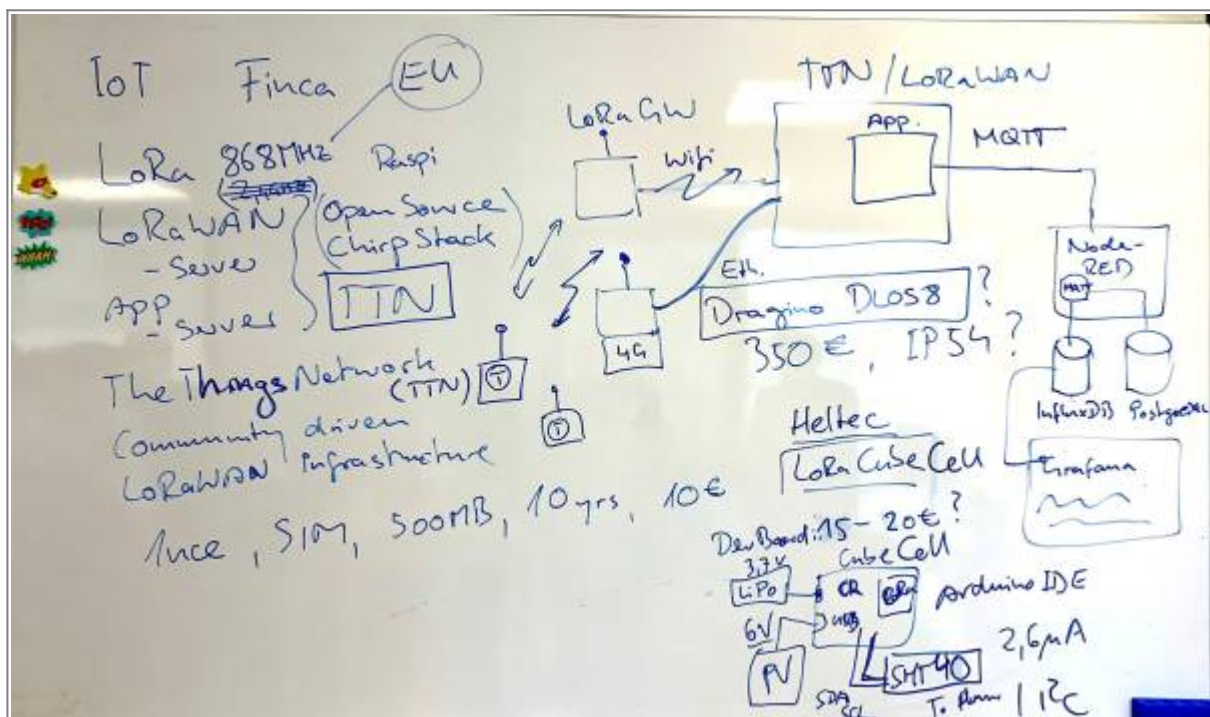 IoT Finca EU
LoRa 868MHz Raspi
LoRaWAN
- Server
APP
- Server
(Open Source
ChirpStack)
TTN
The Things Network
(TTN)
Community driven
LoRaWAN Infrastructure
1nce, SIM, 500MB, 10yrs, 10€
T
T
LoRa GW
Wifi
4G
Eth.
TTN/LoRaWAN
APP.
MQTT
Dragino DLOS8 ?
350€, IP54?
Node-
RED
MQTT
InfluxDB
Grafana
Heltec
LoRa CubeCell
Dev Board: 15-20€?
CubeCell
3,7V
LiPo
6V
PV
USB
LoRa
Arduino IDE
SHT40
2,6µA
SDA
SCL
I²C